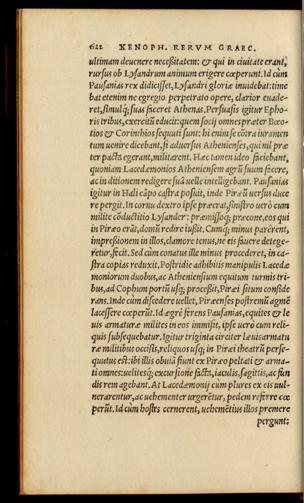 622 XENOPH. RERVM GRAEC.
ultimam deuenere necessitatem: & qui in ciuitate erant,
rursus ob Lysandrum animum erigere cœperunt. Id cùm
Pausanias rex didicisset, Lysandri gloriæ inuidebat: time
bat etenim ne egregio perpetrato opere, clarior euade-
ret, simulq; suas faceret Athenas. Persuasis igitur Epho-
ris tribus, exercitũ educit: quem socij omnes præter Bœo-
tios & Corinthios sequuti sunt: hi enim se cõtra iuramen
tum uenire dicebant, si aduersus Athenienses, qui nil præ
ter pacta egerant, militarent. Hæc tamen ideo faciebant,
quoniam Lacedæmonios Atheniensem agrũ suum facere,
ac in ditionem redigere suã uelle intelligebant. Pausanias
igitur in Hali cãpo castra posuit, inde Piræũ uersus duce
re pergit. In cornu dextro ipse præerat, sinistro uerò cum
milite cõductitio Lysander: præmissoq; præcone, eos qui
in Piræo erãt, domũ redire iußit. Cumq; minus parêrent,
impreßionem in illos, clamore tenus, ne eis fauere detege-
retur, fecit. Sed cùm conatus ille minus procederet, in ca-
stra copias reduxit. Postridie adhibitis manipulis Lacedæ
moniorum duobus, ac Atheniensium equitum turmis tri-
bus, ad Cophum portũ usq; proceßit, Piræi situm conside
rans. Inde cùm discedere uellet, Piræenses postremũ agmẽ
lacessere cœperũt. Id ægrè ferens Pausanias, equites & le
uis armaturæ milites in eos immisit, ipse uerò cum reli-
quis subsequebatur. Igitur triginta circiter leuis armatu
ræ militibus occisis, reliquos usq; in Piræi theatrũ perse-
quutus est: ibi illis obuiã fiunt ex Piræo peltati & arma-
ti omnes: uelitesq; excursione facta, iaculis, sagittis, ac fun
dis rem agebant. At Lacedæmonij cùm plures ex eis uul-
nerarentur, ac uehementer urgerẽtur, pedem referre cœ
perũt. Id cùm hostes cernerent, uehemẽtius illos premere
pergunt: